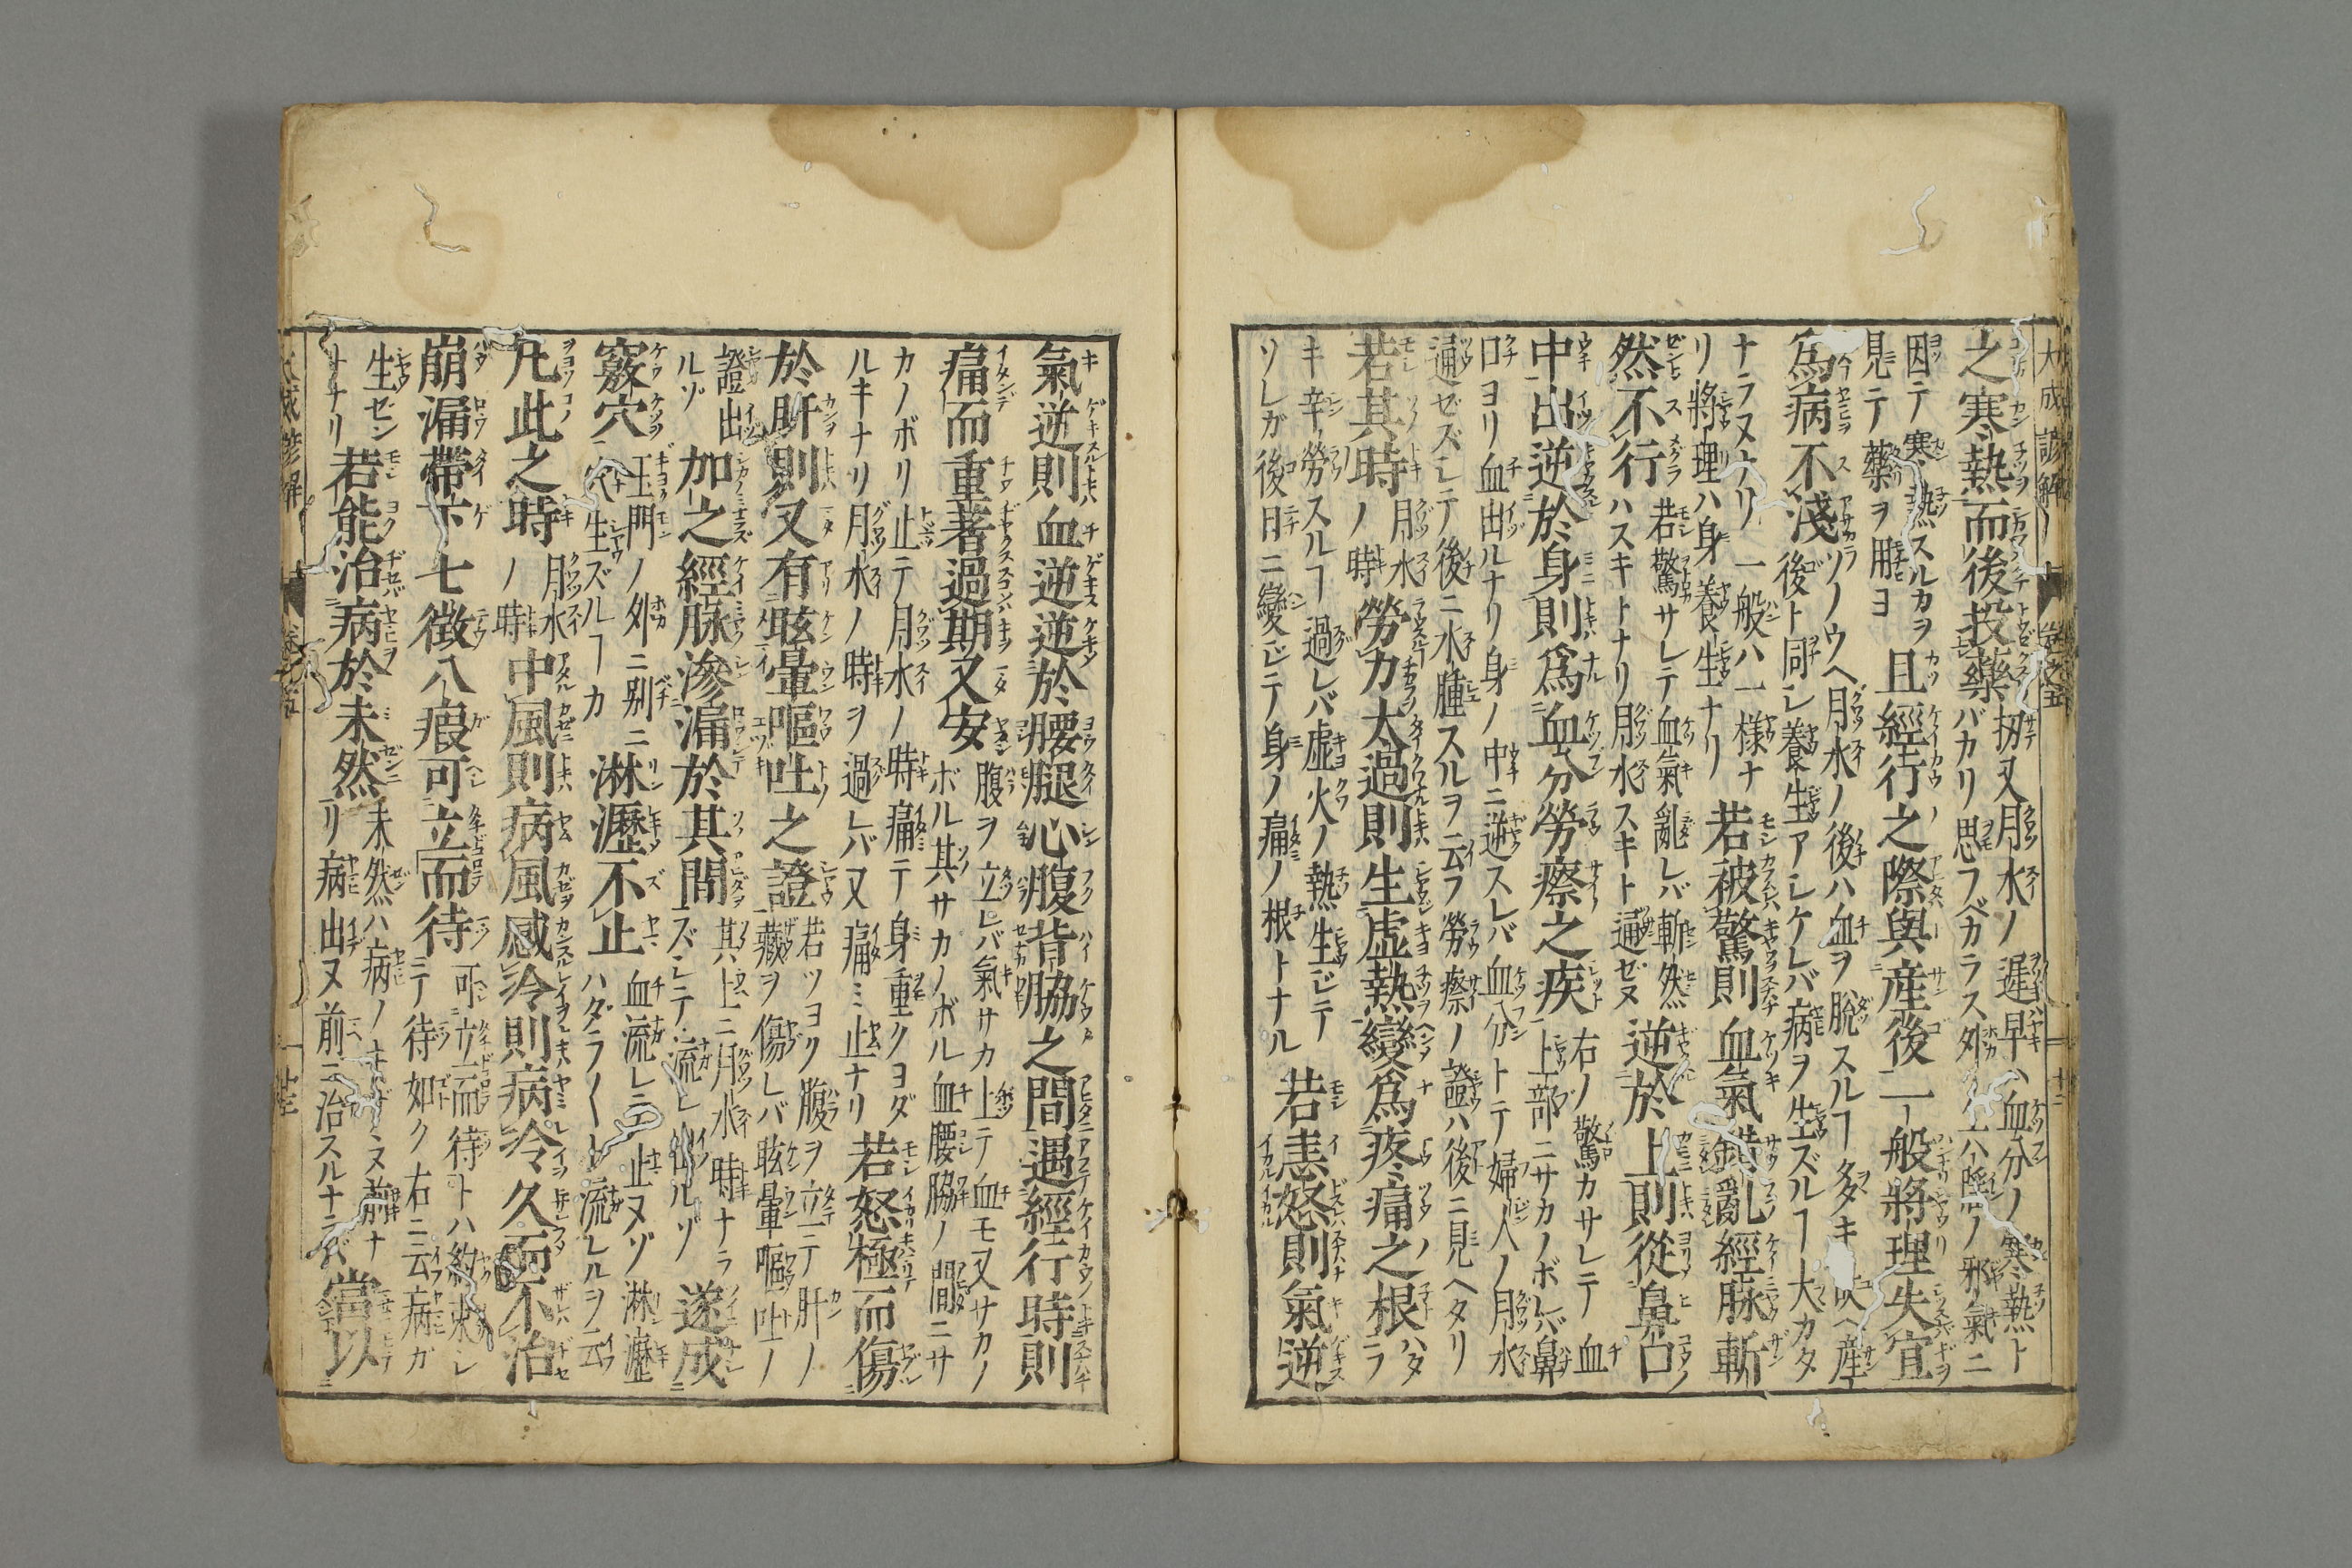 大成諺解
之寒熱而後投藥
扨又月水ノ遅早ハ血分ノ寒熱ト
バカリ思フベカラス外
ノ邪氣ニ
因テ寒熱スルカヲ
見テ藥ヲ用ヨ
且經行之際與産後一般將理失宜
爲病不淺
月水ノ後ハ血ヲ脫スルヿ
産
後ト同ク養生アレケレバ病ヲ生ズルヿ大カタ
ナラヌナリ一般ハ一樣ナ
リ將理ハ身養生ナリ
若被驚則血氣錯亂經脉斬
然不行
若驚サレテ血氣亂レバ斬然
ハスキトナリ月水スキト通ゼヌ
逆於上則從鼻口
中出逆於身則爲血分勞瘵之疾
右ノ驚カサレテ血
上部ニサカノボレバ鼻
口ヨリ血出ルナリ身ノ中ニ逆スレバ血分トテ婦人ノ月水
通ゼズレテ後ニ水腫スルヲ云フ勞瘵ノ證ハ後ニ見ヘタリ
若其時
月水
ノ時
勞力太過則生虛熱變爲疼痛之根
ハタ
ラ
キ辛勞スルヿ過レバ虛火ノ熱生ジテ
ソレガ後日ニ變ジテ身ノ痛ノ根トナル
若恚怒則氣逆
氣逆則血逆逆於腰腿心腹背脇之間遇經行時則
痛而重著過期又安
腹ヲ立レバ氣サカ上テ血モ又サカノ
ボル其サカノボル血腰脇ノ間ニサ
カノボリ止テ月水ノ時痛テ身重クヨダ
ルキナリ月水ノ時ヲ過レバ又痛ミ止ナリ
若怒極而傷
於肝則又有眩暈嘔吐之證
若ツヨク腹ヲ立テ肝ノ
藏ヲ傷レバ眩暈嘔吐ノ
證出
ルゾ
加之經脉滲漏於其間
其上ニ月水時ナラ
ズレテ流レ出ルゾ
遂成
竅穴
玉門ノ外ニ別ニ
穴生ズルヿカ
淋瀝不止
血流レテ止ヌゾ淋瀝
ハダラ〱ト流レルヲ云
凡此之時
月水
ノ時
中風則病風感冷則病冷久而不治
崩漏帶下七癥八瘕可立而待
可立而待トハ約束レ
テ待如ク右ニ云病ガ
生ゼン
ナナリ
若能治病於未然
未然ハ病ノ
ヌ前ナ
リ病出ヌ前ニ治スルナ
當以